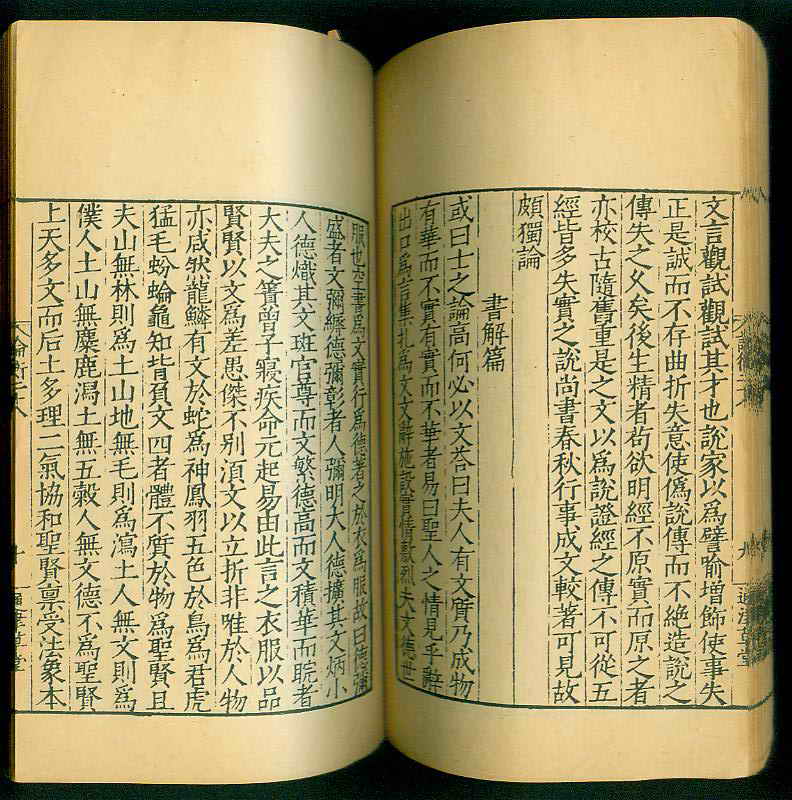 文言觀試觀試其才也說家以爲譬喻增飾使事失
正是誠而不存曲折失意使僞說傳而不絕造說之
傳失之父矣後生精者茍欲明經不原實而原之者
亦校古隨舊重是之文以爲說證經之傳不可從五
經皆多失實之說尚書春秋行事成文較著可見故
頗獨論
書解篇
或曰士之論高何必以文荅曰夫人有文質乃成物
有華而不實有實而不華者易曰聖人之情見乎辭
出口爲言集札爲文文辭施設實情敷烈夫文德世
服也空書爲文實行爲德著之於衣爲服故曰德彌
盛者文彌縟德彌彰者人彌明大人德擴其文炳小
人德熾其文班官尊而文繁德高而文積華而睆者
大夫之簀曾子寢疾命元起易由此言之衣服以品
賢賢以文爲差愚傑不別湏文以立折非唯於人物
亦咸然龍鱗有文於蛇爲神鳳羽五色於鳥爲君虎
猛毛蚡蜦龜知背負文四者體不質於物爲聖賢且
夫山無林則爲土山地無毛則爲瀉土人無文則爲
僕人土山無麋鹿瀉土無五穀人無文德不爲聖賢
上天多文而后土多理二氣協和聖賢稟受法象本